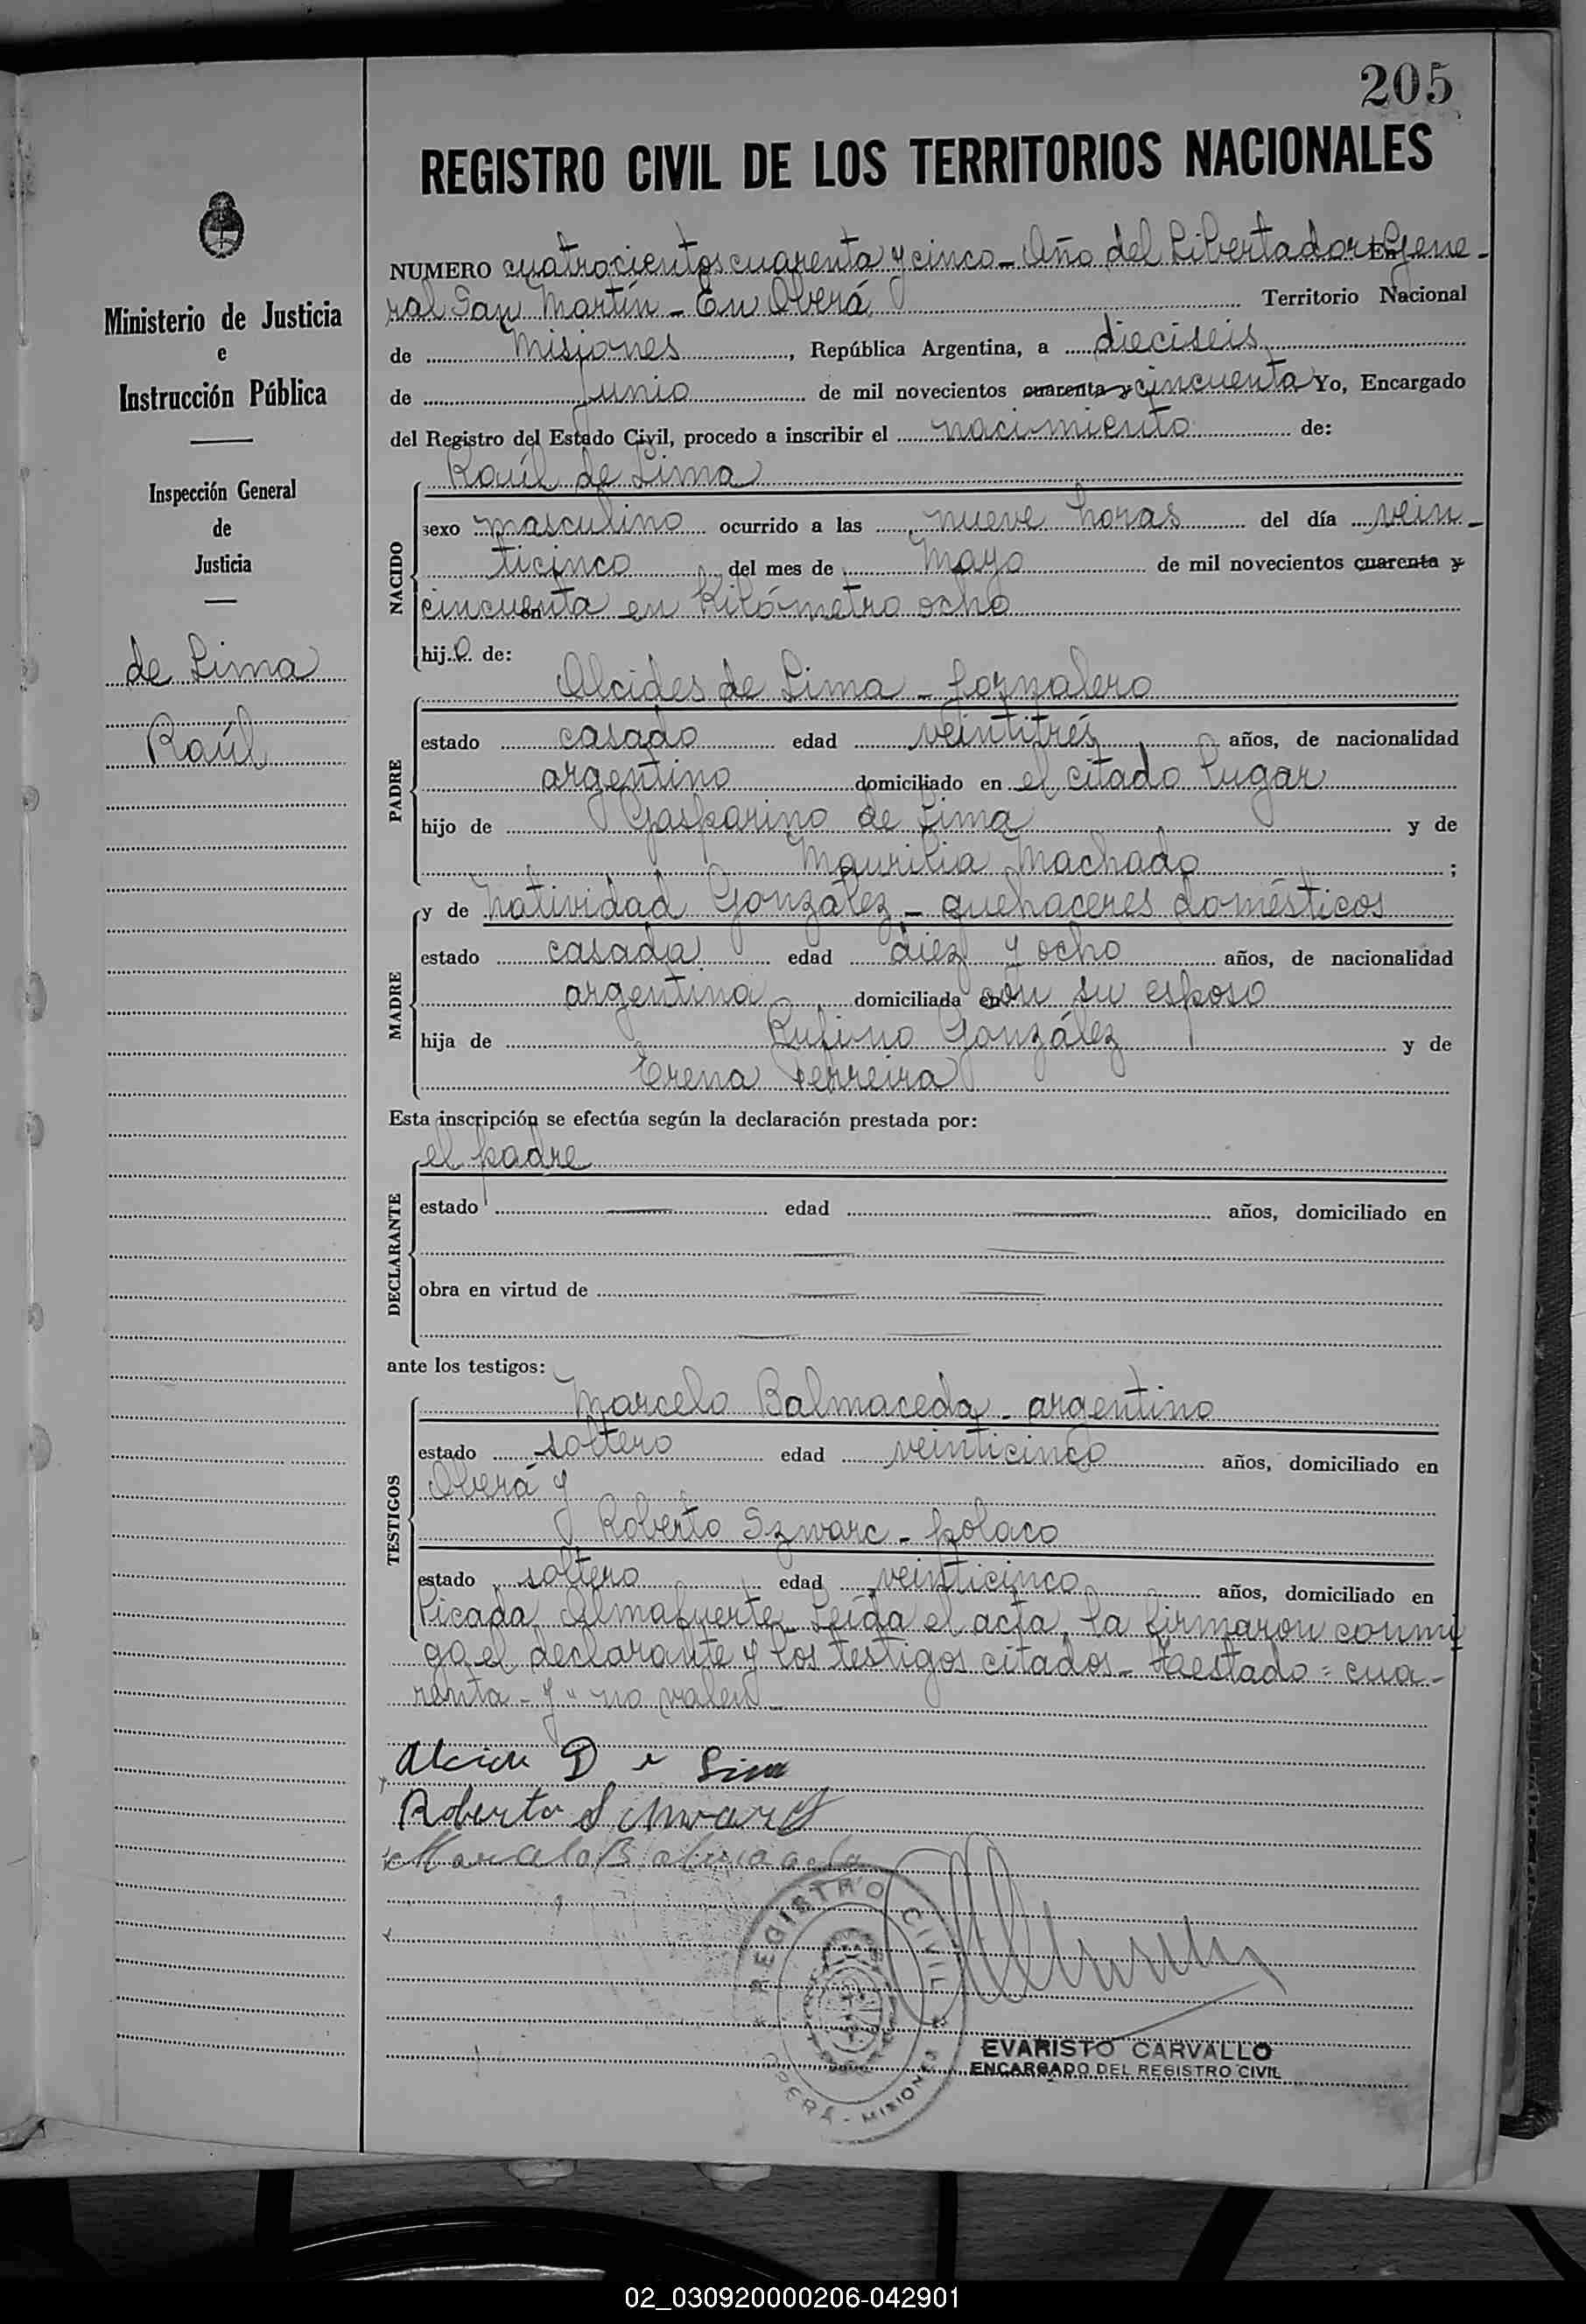 205
REGISTRO CIVIL DE LOS TERRITORIOS NACIONALES
Ministerio de Justicia
e
Instrucción Pública
Inspección General
de
Justicia
de Lima
Raúl
NUMERO cuatrocientos cuarenta y cinco - Año del Libertador En Gene-
ral San Martín - En Oberá Territorio Nacional
de Misiones, República Argentina, a dieciseis
de Junio de mil novecientos cuarenta y cincuenta Yo, Encargado
del Registro del Estado Civil, procedo a inscribir el nacimiento de:
NACIDO
Raúl de Lima
sexo masculino ocurrido a las nueve horas del día vein-
ticinco del mes de Mayo de mil novecientos cuarenta y
cincuenta en en Kilómetro ocho
hijo de:
PADRE
Alcides de Lima - Jornalero
estado casado edad veintitrés años, de nacionalidad
argentino domiciliado en el citado lugar
hijo de Gasparino de Lima y de
Maurilia Machado ;
MADRE
y de Natividad González - quehaceres domésticos
estado casada edad diez y ocho años, de nacionalidad
argentina domiciliada en con su esposo
hija de Rufino González y de
Erena Ferreira
Esta inscripción se efectúa según la declaración prestada por:
DECLARANTE
el padre
estado — edad — años, domiciliado en
obra en virtud de
ante los testigos:
TESTIGOS
Marcelo Balmaceda - argentino
estado soltero edad veinticinco años, domiciliado en
Oberá y
Roberto Szwarc - polaco
estado soltero edad veinticinco años, domiciliado en
Picada Almafuerte - Leída el acta, la firmaron conmi
go el declarante y los testigos citados - Testado = cua-
renta - y " no valen -
Roberto Schwarcz
Marcelo Balmaceda
REGISTRO CIVIL
OBERÁ - MISIONES
EVARISTO CARVALLO
ENCARGADO DEL REGISTRO CIVIL
02_030920000206-042901